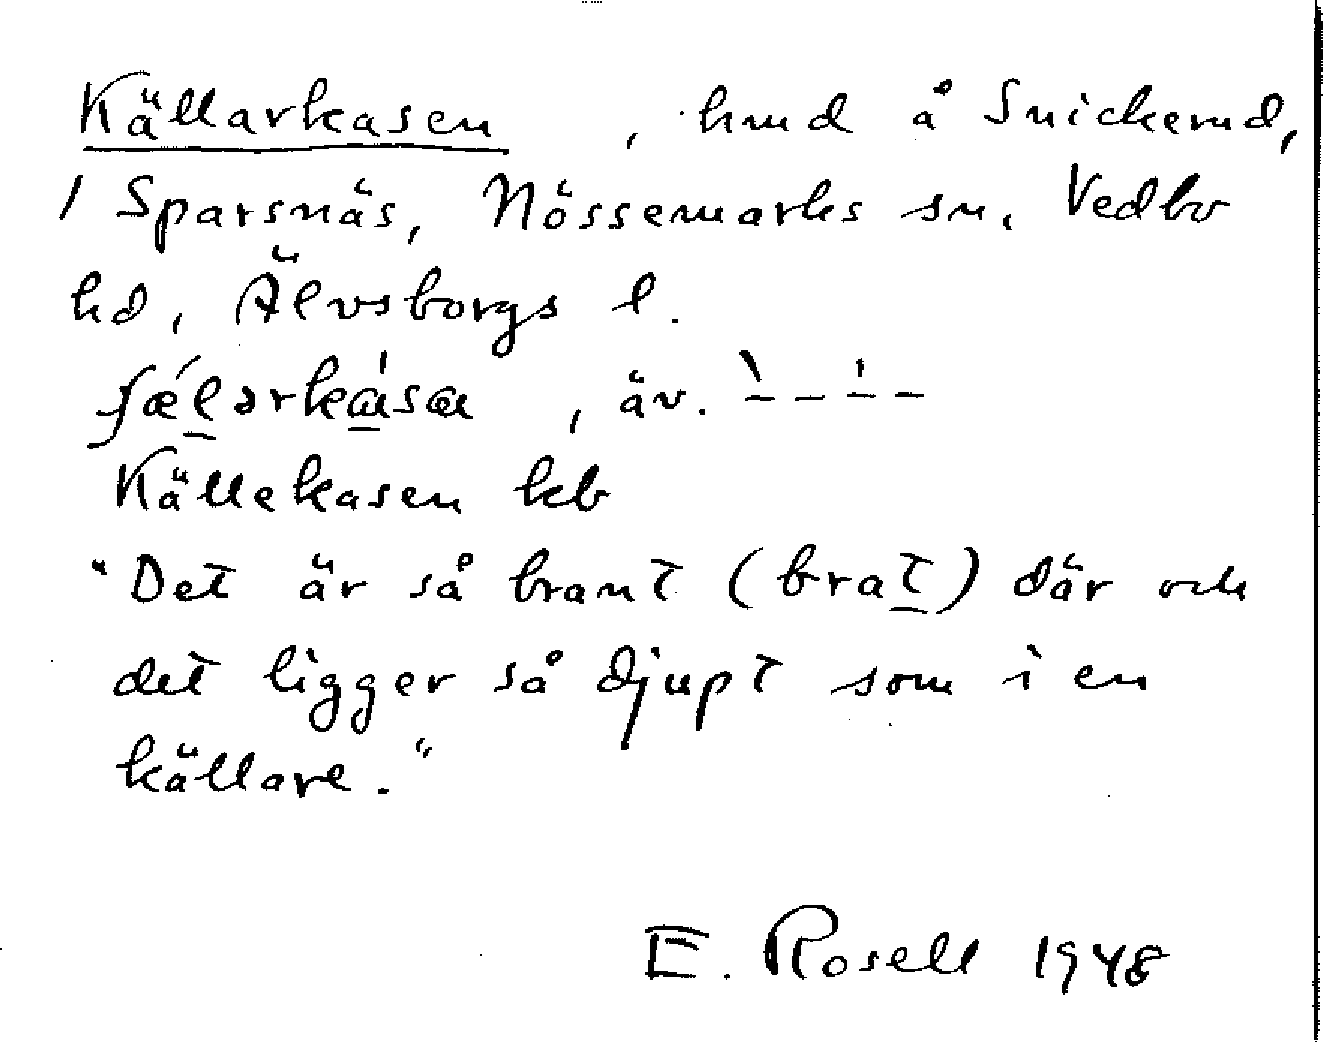 Källarkasen, hmd å Snickerud,
1 Sparsnäs, Nössemarks sn, Vedbo
hd, Älvsborgs l.
, äv.
Källekasen kb
"Det är så brant (brat) där och
det ligger så djupt som i en
källare."
E. Rosell 1948